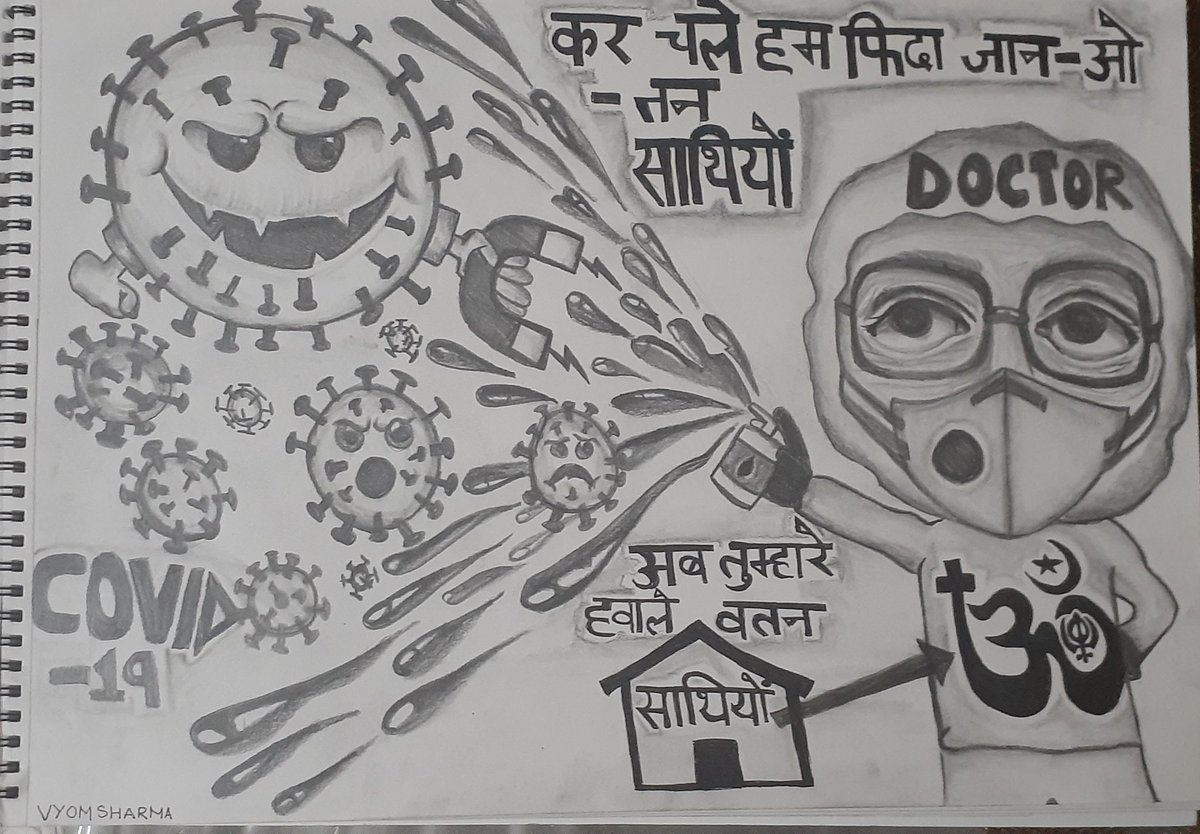 कर चले हम फिदा जान-ओ
-तन
साथियों
DOCTOR
अब तुम्हारे
हवाले वतन
साथियों
COVID
-19
VYOM SHARMA